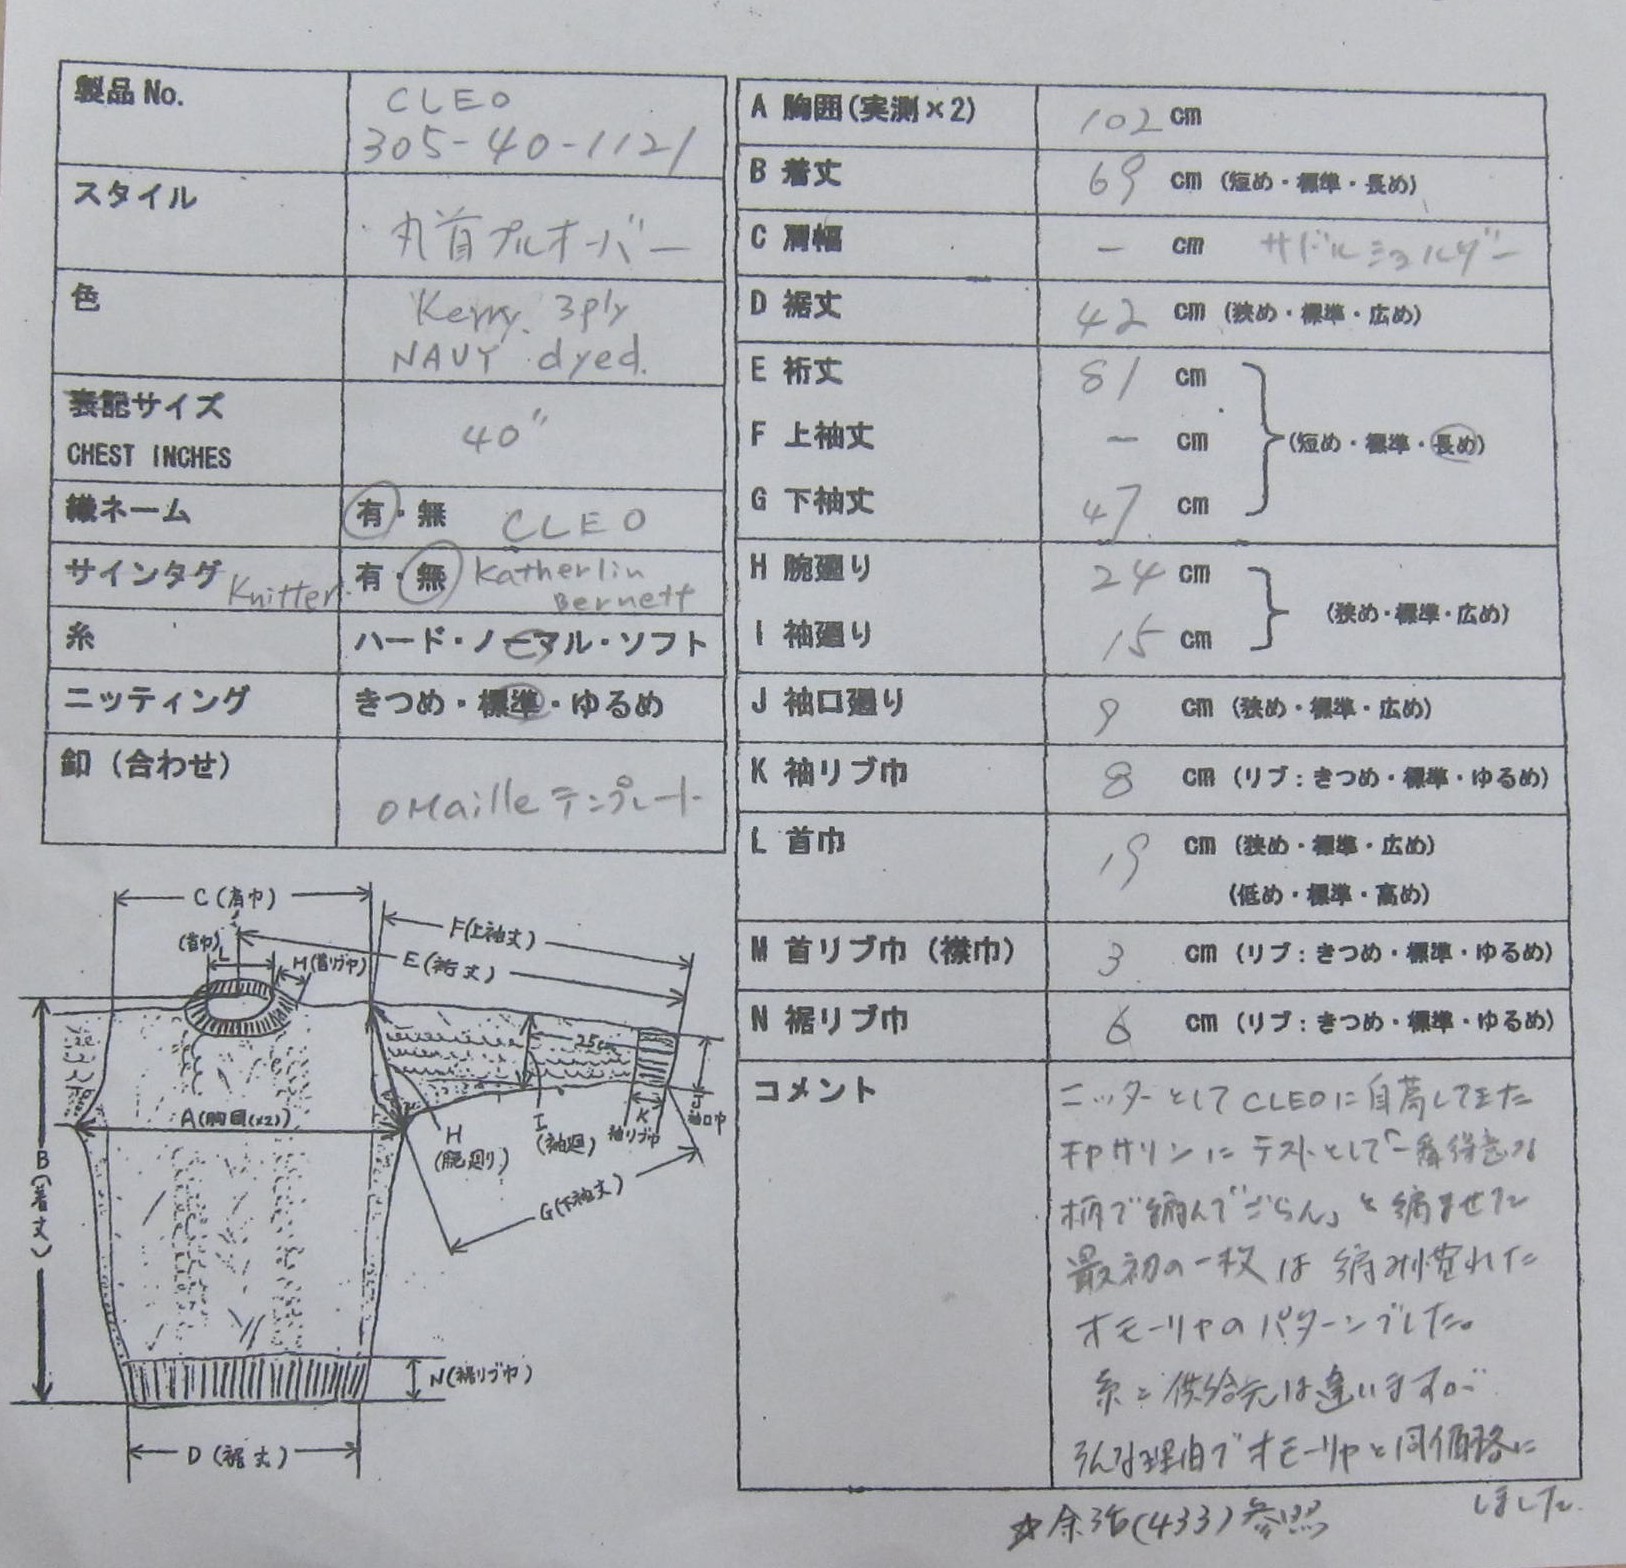 製品 No.
CLEO
305-40-1121
スタイル
丸首プルオーバー
色
Kerry. 3ply
NAVY dyed.
表記サイズ
CHEST INCHES
40"
織ネーム
有・無 CLEO
サインタグ Knitter.
有・無 Katherlin
Bernett
糸
ハード・ノーマル・ソフト
ニッティング
きつめ・標準・ゆるめ
釦（合わせ）
OMailleテンプレート
A 胸囲(実測×2) 102 cm
B 着丈 69 cm (短め・標準・長め)
C 肩幅 － cm サドルショルダー
D 裾丈 42 cm (狭め・標準・広め)
E 裄丈 81 cm
F 上袖丈 － cm (短め・標準・長め)
G 下袖丈 47 cm
H 腕廻り 24 cm
(狭め・標準・広め)
I 袖廻り 15 cm
J 袖口廻り 9 cm (狭め・標準・広め)
K 袖リブ巾 8 cm (リブ：きつめ・標準・ゆるめ)
L 首巾 19 cm (狭め・標準・広め)
(低め・標準・高め)
M 首リブ巾（襟巾） 3 cm (リブ：きつめ・標準・ゆるめ)
N 裾リブ巾 6 cm (リブ：きつめ・標準・ゆるめ)
コメント
ニッターとしてCLEOに自薦してきた
キャサリンにテストとして「一番得意な
柄で編んでごらん」と編ませた
最初の一枚は編み慣れた
オモーリャのパターンでした。
糸の供給元は違いますが
そんな理由でオモーリャと同価格に
しました.
☆余話(433)参照
C (肩巾)
(首巾)
L
M(首リブ巾)
F(上袖丈)
E (裄丈)
25cm
A(胸囲(×2))
B(着丈)
H
(腕廻り)
I
(袖廻)
K
袖リブ巾
J
袖口巾
G(下袖丈)
N(裾リブ巾)
D (裾丈)